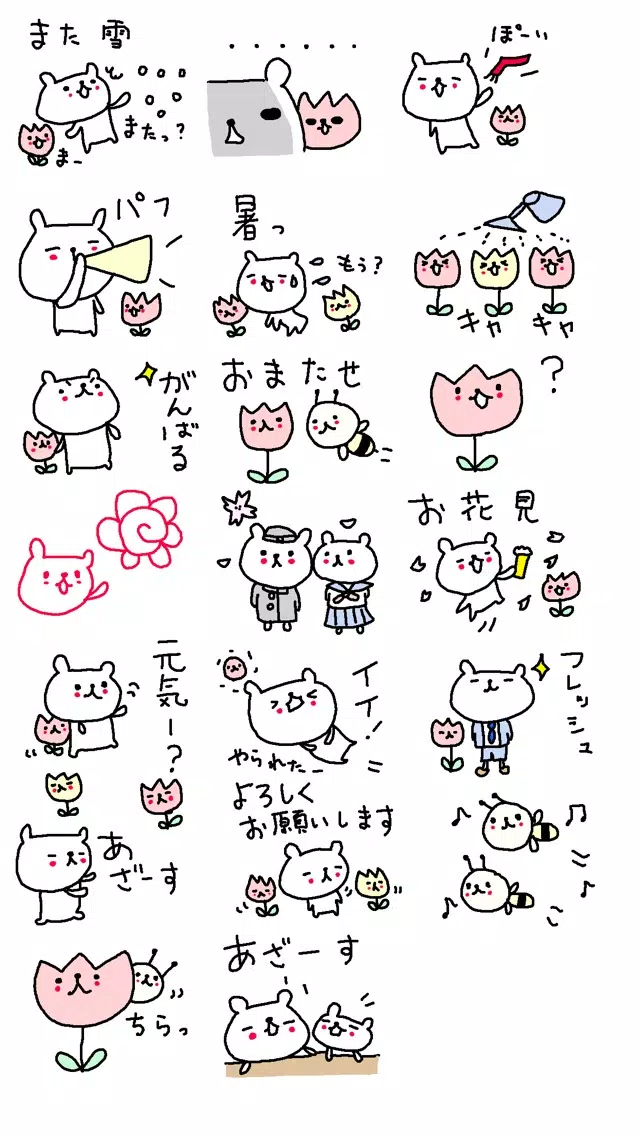 また雪
またっ?
まー
・・・・・・
ぽーい
パフ
暑っ
もう?
キャ キャ
がんばる
おまたせ
?
お花見
元気ー?
イイ!
やられたー
フレッシュ
よろしく
お願いします
あざーす
ちらっ
あざーす